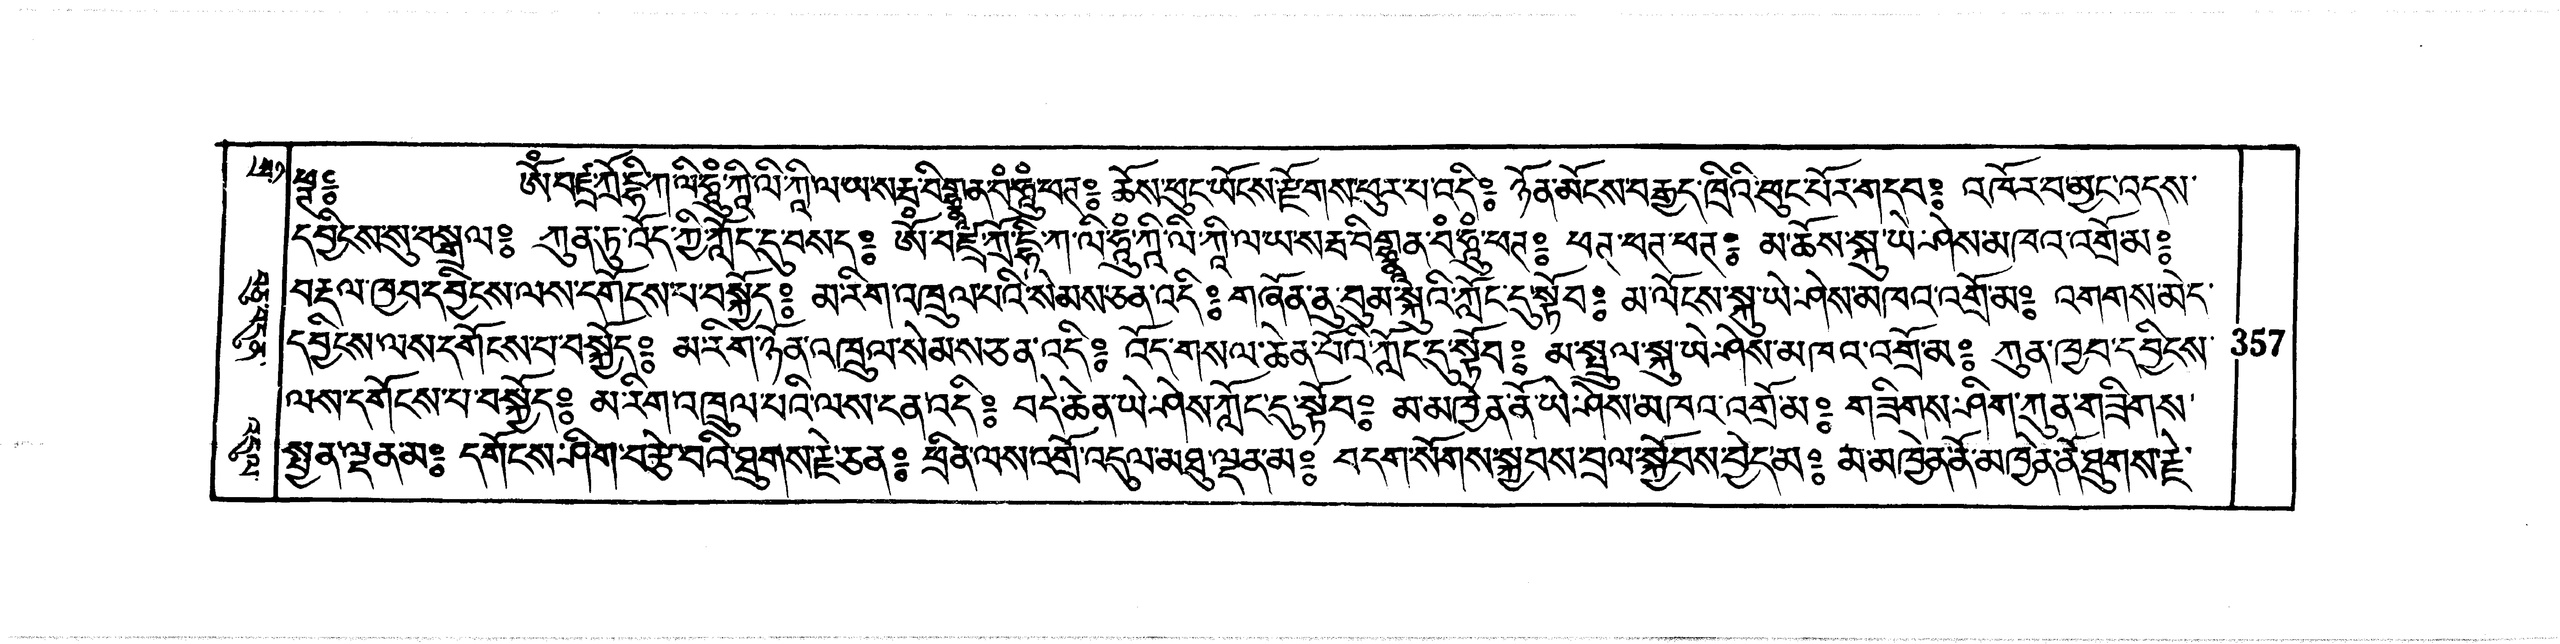 ཕཊ༔ ཨོཾ་བཛྲ་ཀྲོ་དྷི་ཀ་ལི་ཧཱུྃ་ཀཱི་ལི་ཀཱི་ལ་ཡ་སརྦ་བིགྷྣན་བཾ་ཧཱུྃ་ཕཊ༔ ཆོས་ཕུང་ཡོངས་རྫོགས་ཕུར་པ་འདི༔ ཉོན་མོངས་བརྒྱད་ཁྲིའི་ཕུང་པོར་གདབ༔ འཁོར་བ་མྱང་འདས་
དབྱིངས་སུ་བསྒྲལ༔ ཀུན་ཏུ་འོད་ཀྱི་ཀློང་དུ་བསད༔ ཨོཾ་བཛྲ་ཀྲོ་དྷི་ཀ་ལི་ཧཱུྃ་ཀཱི་ལི་ཀཱི་ལ་ཡ་སརྦ་བིགྷྣན་བཾ་ཧཱུྃ་ཕཊ༔ ཕཊ་ཕཊ་ཕཊ༔ མ་ཆོས་སྐུ་ཡེ་ཤེས་མཁའ་འགྲོ་མ༔
བརྡལ་ཁྱབ་དབྱིངས་ལས་དགོངས་པ་བསྐྱོད༔ མ་རིག་འཁྲུལ་པའི་སེམས་ཅན་འདི༔ གཞོན་ནུ་བུམ་སྐུའི་ཀློང་དུ་སྟོབ༔ མ་ལོངས་སྐུ་ཡེ་ཤེས་མཁའ་འགྲོ་མ༔ འགགས་མེད་
དབྱིངས་ལས་དགོངས་པ་བསྐྱོད༔ མ་རིག་ཉོན་འཁྲུལ་སེམས་ཅན་འདི༔ འོད་གསལ་ཆེན་པོའི་ཀློང་དུ་སྟོབ༔ མ་སྤྲུལ་སྐུ་ཡེ་ཤེས་མཁའ་འགྲོ་མ༔ ཀུན་ཁྱབ་དབྱིངས་
357
ལས་དགོངས་པ་བསྐྱོད༔ མ་རིག་འཁྲུལ་པའི་ལས་ངན་འདི༔ བདེ་ཆེན་ཡེ་ཤེས་ཀློང་དུ་སྟོབ༔ མ་མཁྱེན་ནོ་ཡེ་ཤེས་མཁའ་འགྲོ་མ༔ གཟིགས་ཤིག་ཀུན་གཟིགས་
སྤྱན་ལྡན་མ༔ དགོངས་ཤིག་བརྩེ་བའི་ཐུགས་རྗེ་ཅན༔ ཕྲིན་ལས་འགྲོ་འདུལ་མཐུ་ལྡན་མ༔ བདག་སོགས་སྐྱབས་བྲལ་སྐྱོབས་བྱེད་མ༔ མ་མཁྱེན་ནོ་མཁྱེན་ནོ་ཐུགས་རྗེ་